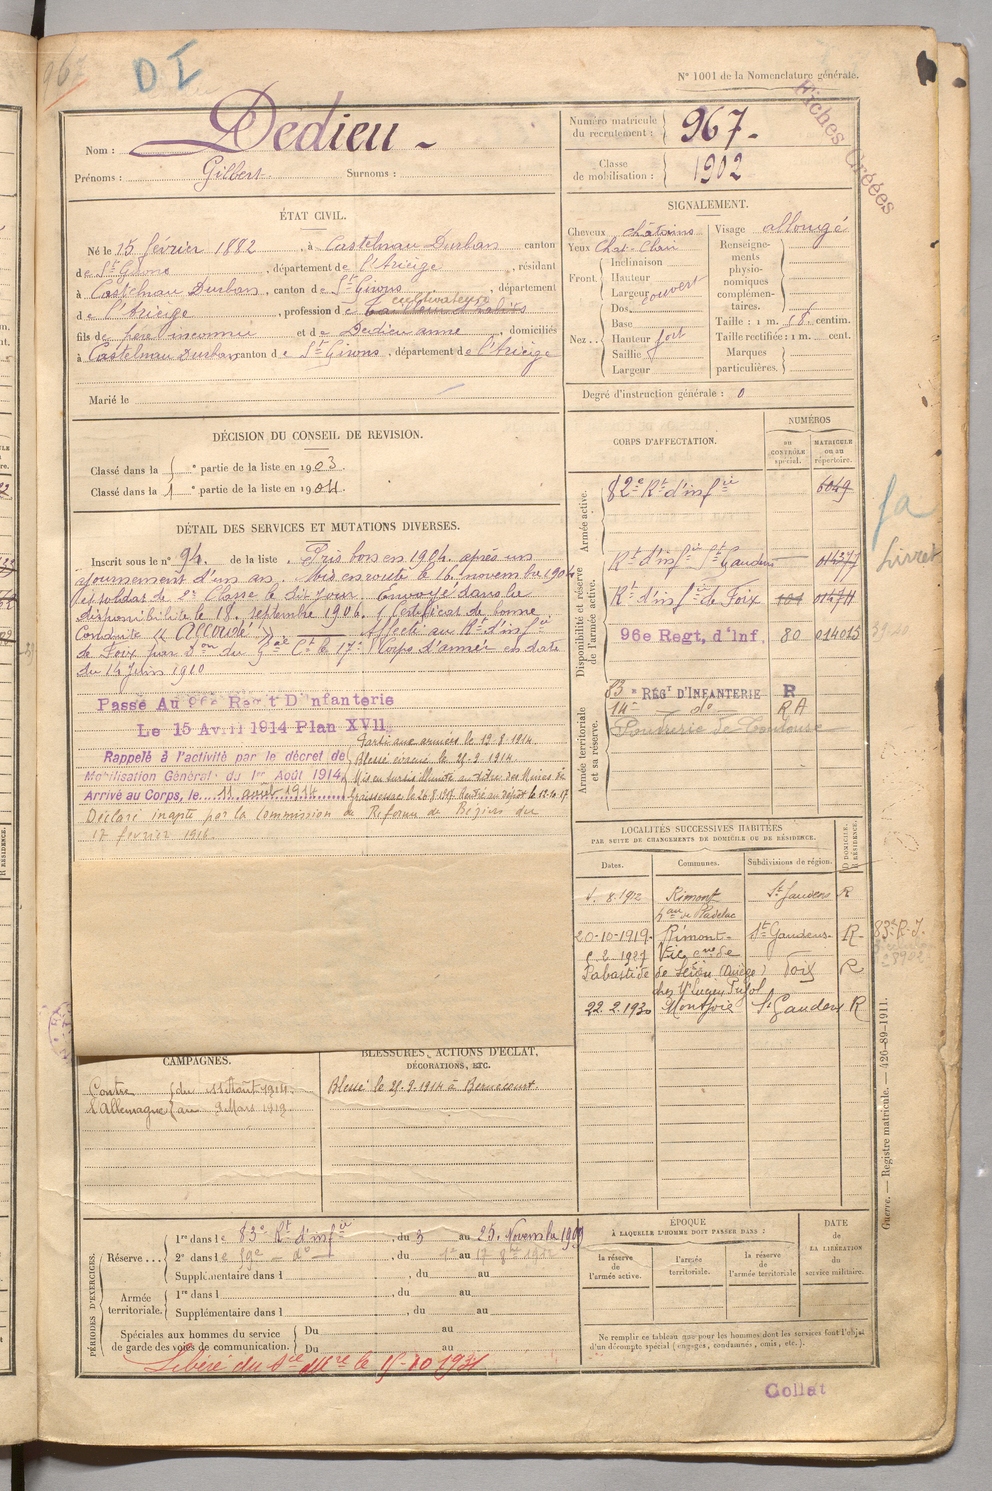 967
DI
N° 1001 de la Nomenclature générale.
Fiches Créées
Nom : Dedieu
Prénoms : Gilbert. Surnoms :
Numéro matricule du recrutement : 967
Classe de mobilisation : 1902
ÉTAT CIVIL.
Né le 15 février 1882, à Castelnau Durban canton
de St Girons, département de l'Ariège, résidant
à Castelnau Durban, canton de St Girons, département
de l'Ariège, profession de cultivateur
fils de père inconnu et de Dedieu anne, domiciliés
à Castelnau Durban canton de St Girons, département de l'Ariège
Marié le
SIGNALEMENT.
Cheveux châtains Visage allongé
Yeux Chat. Clair
Front. Inclinaison
Hauteur
Largeur couvert
Nez... Dos
Base
Hauteur fort
Saillie
Largeur
Renseignements physionomiques complémentaires :
Taille : 1 m. 58 centim.
Taille rectifiée : 1 m. cent.
Marques particulières.
Degré d'instruction générale : 0
DÉCISION DU CONSEIL DE REVISION.
Classé dans la partie de la liste en 1903.
Classé dans la 1 partie de la liste en 1904.
DÉTAIL DES SERVICES ET MUTATIONS DIVERSES.
Inscrit sous le n° 94. de la liste. Pris bon en 1904. après un
ajournement d'un an. Mis en route le 16 novembre 1904
et soldat de 2e Classe le dit jour. Envoyé dans la
disponibilité le 18 septembre 1906. Certificat de bonne
Conduite "Accordé" Affecté au Rt d'infie
de Foix par don du Gal Ct le 17e Corps d'armée en date
du 14 Juin 1910
Passé Au 96e Reg't D'Infanterie
Le 15 Avril 1914 Plan XVII
Rappelé à l'activité par le décret de
Mobilisation Générale du 1er Août 1914
Arrivé au Corps, le 11 août 1914
Parti aux armées le 12.8.1914.
Blessé évacué le 28.9.1914.
Mis en sursis au titre des Mines de
Graissessac le 26.8.1917 Rentré au dépôt le 12.10.17
Déclaré inapte par la Commission de Réforme de Béziers du
17 février 1916.
CORPS D'AFFECTATION.
NUMÉROS
au CONTRÔLE spécial.
MATRICULE ou au répertoire.
Armée active.
82e Rt d'infie 6049
Disponibilité et réserve de l'armée active.
Rt d'infie St Gaudens 014377
Rt d'infie de Foix 014711
96e Regt, d'Inf. 80 014015
Armée territoriale et sa réserve.
83e RÉGT D'INFANTERIE R
14e do RA
Poudrerie de Toulouse
fa
Livret
LOCALITÉS SUCCESSIVES HABITÉES
PAR SUITE DE CHANGEMENTS DE DOMICILE OU DE RÉSIDENCE.
Dates. Communes. Subdivisions de région. D DOMICILE. R RÉSIDENCE.
8.1912 Rimont St Gaudens R
20-10-1919 Rimont St Gaudens R
2 1927 de Sérou (Ariège) Foix R
22.2.1930 Montjoie St Gaudens R
83e R.I.
CAMPAGNES.
Contre l'Allemagne du 11 Août 1914
au 9 Mars 1919
BLESSURES, ACTIONS D'ÉCLAT, DÉCORATIONS, ETC.
Blessé le 28.9.1914 à Bernecourt.
PÉRIODES D'EXERCICES.
Réserve... 1re dans le 83e Rt d'infie, du 3 au 25 Novembre 1909
2e dans le 59e do, du 1er au 17
Supplémentaire dans l, du au
Armée territoriale. 1re dans l, du au
Supplémentaire dans l, du au
Spéciales aux hommes du service de garde des voies de communication. Du au
Du au
Libéré du Sce Mre le 15-10-1931
ÉPOQUE
À LAQUELLE L'HOMME DOIT PASSER DANS :
la réserve de l'armée active.
l'armée territoriale.
la réserve de l'armée territoriale
DATE de LA LIBÉRATION du service militaire.
Ne remplir ce tableau que pour les hommes dont les services font l'objet d'un décompte spécial (engagés, condamnés, omis, etc.).
Guerre. — Registre matricule. — 426-89-1911.
Collat